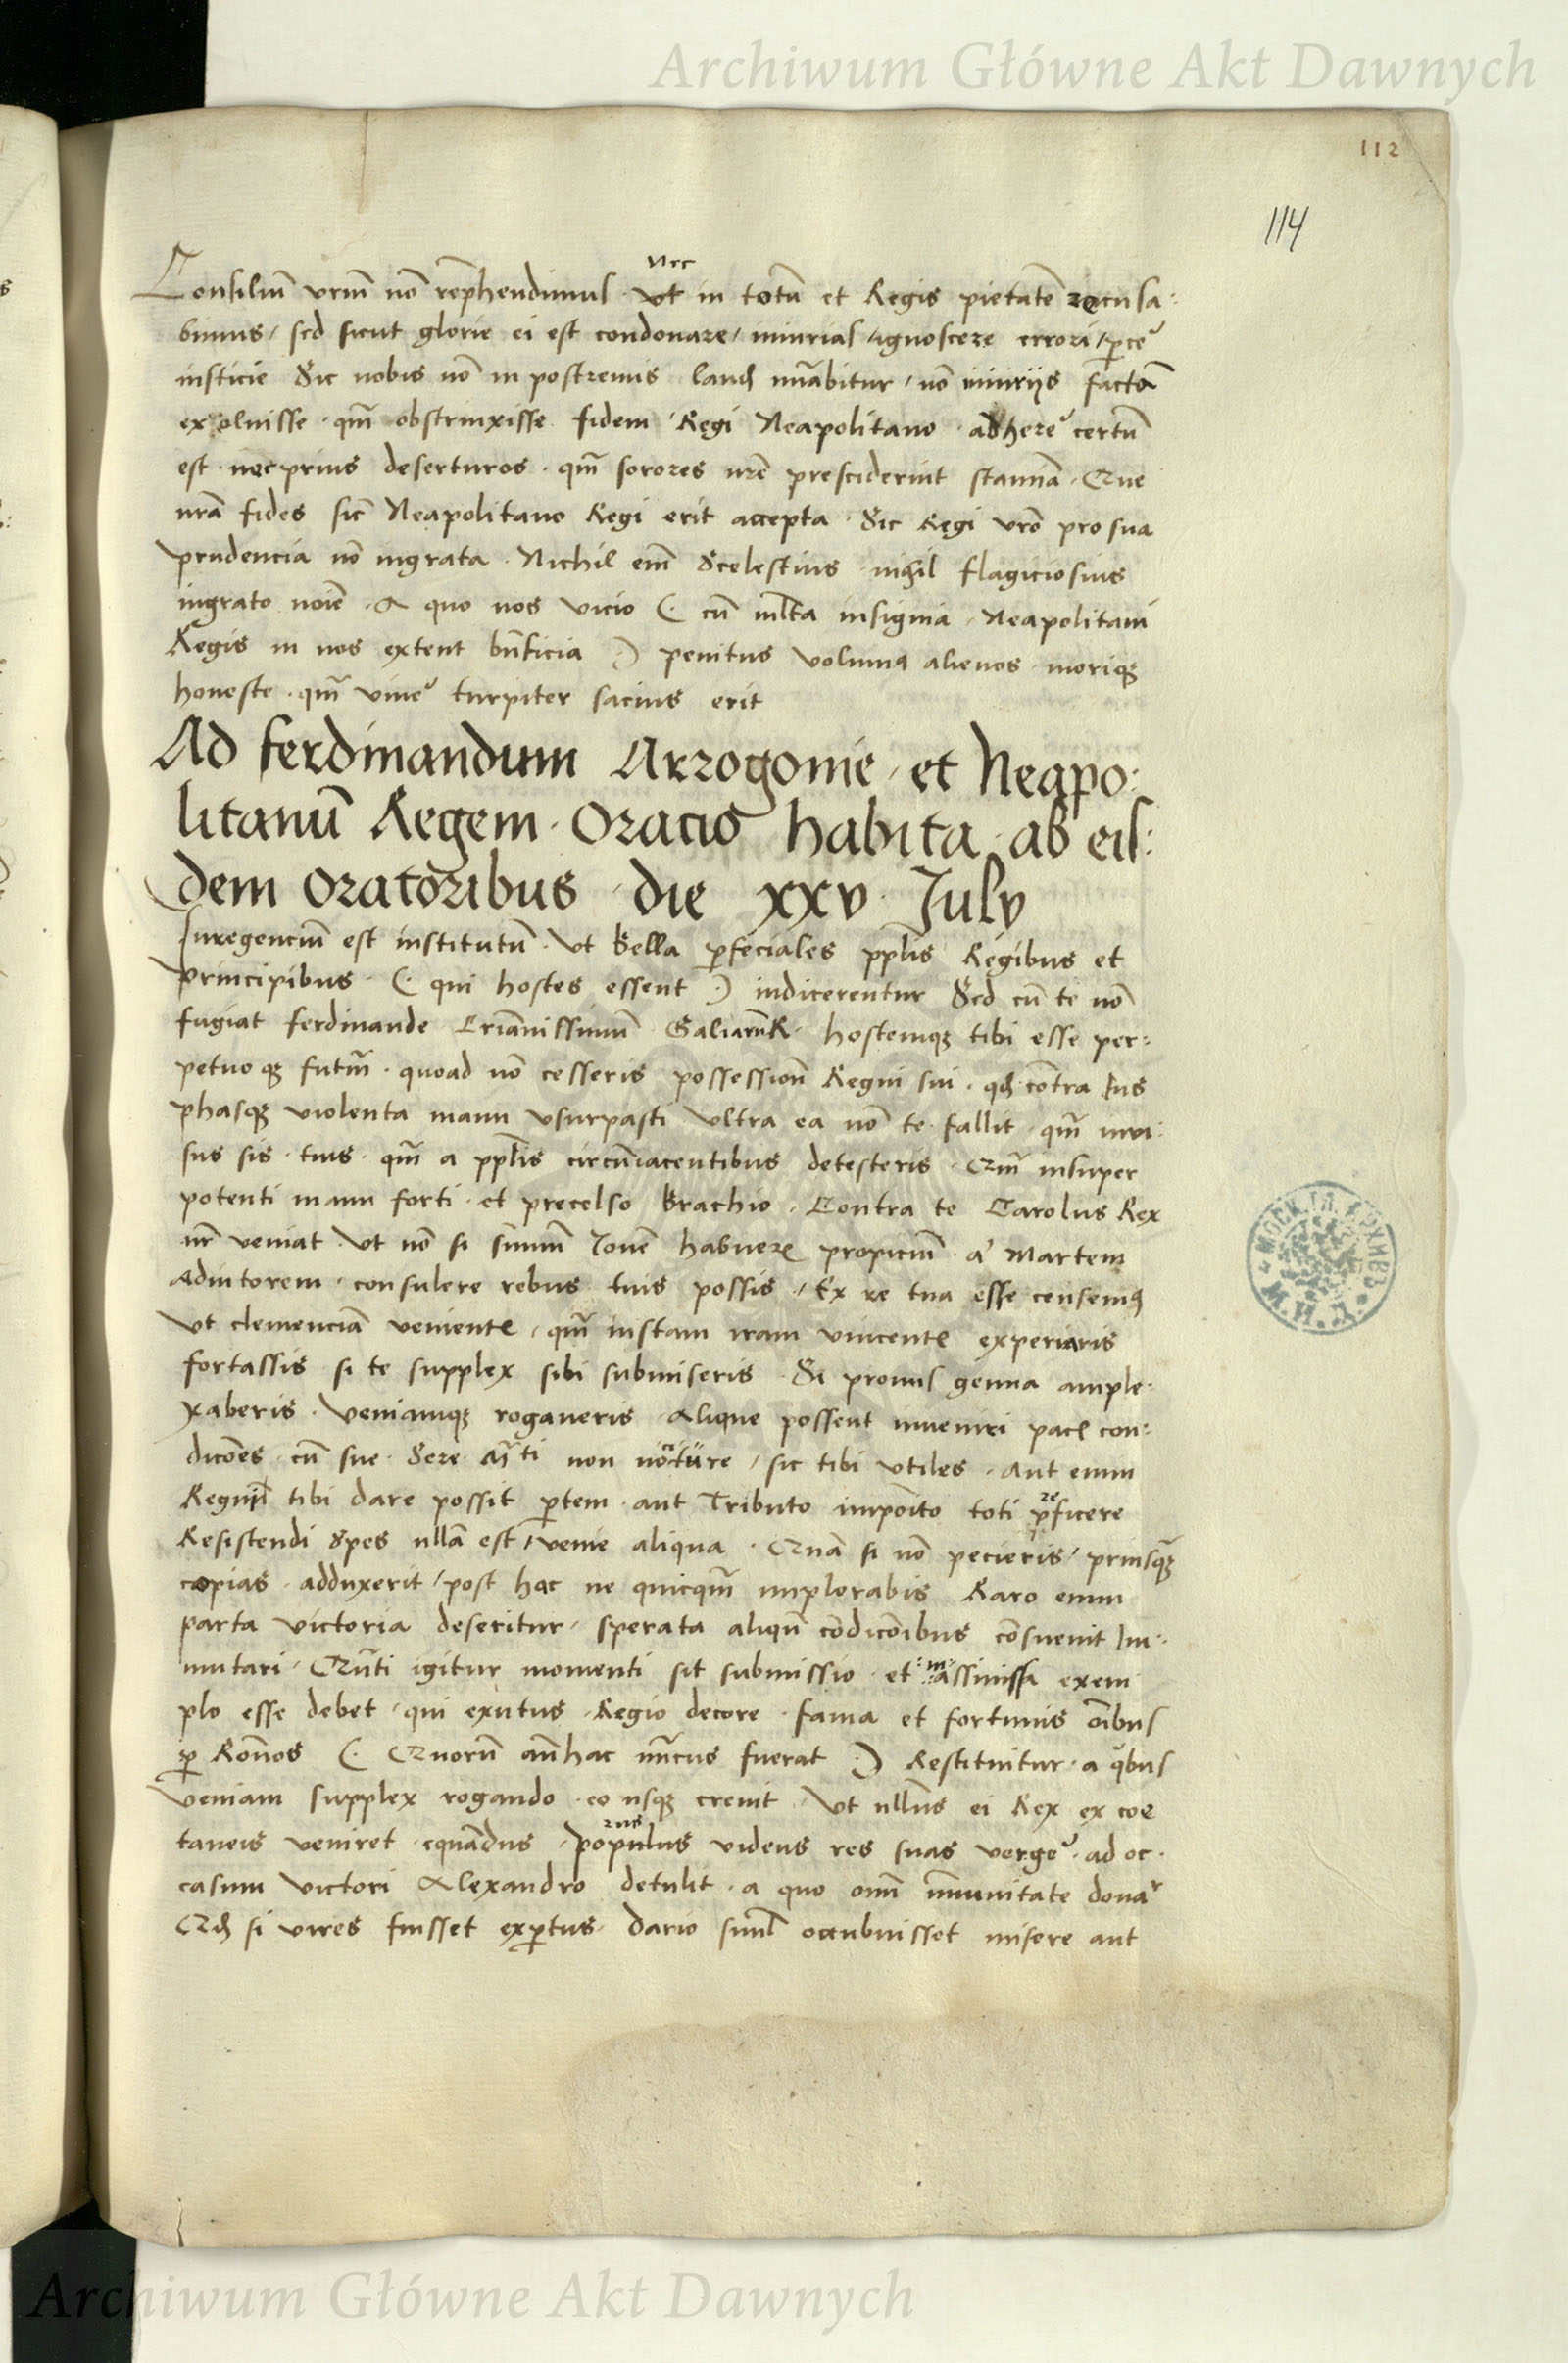 Archiwum Główne Akt Dawnych
112
114
Nec
Consiliũ vrm̃ nõ rep̃hendimus · vt in totũ et Regis pietatẽ recusa:
bimus / sed sicut glorie ei est condonare / iniurias / ignoscere errori / ꝑce᷒
insticie Sic nobis nõ in postremis laudꝭ nũabitur / nõ iniurijs factã
exsoluisse · qm̃ obstrinxisse fidem · Regi Neapolitano · adhere᷒ certũ
est · nec prius deserturos · qm̃ sorores nrẽ presciderint staminã · Que
nrã fides sic̃ Neapolitano Regi erit accepta · Sic Regi vrõ pro sua
prudencia nõ ingrata · Nichil em̃ Scelestius · nihil flagiciosius
ingrato noiẽ · A quo nos vicio (· cũ ml̃ta insignia · Neapolitani
Regis in nos extent bñficia ·) penitus volumꝰ alienos · moriqꝫ
honeste · qm̃ viue᷒ turpiter sacius erit
Ad ferdinandum Arrogonie · et Neapo:
litanũ Regem · Oracio habita · ab eis:
dem Oratoribus · die xxv · July
Iuregenciũ est institutũ · Vt bella ꝑfeciales pp̃lis Regibus et
principibus · (· qui hostes essent ·) indicerentur Sed cũ te nõ
fugiat ferdinande Criãnissimũ GaliarũR · hostemqꝫ tibi esse per:
petuo qꝫ futm̃ · quoad nõ cesseris possessionẽ Regni sui · qꝫ contra Ius
phasqꝫ violenta manu vsurpasti Vltra ea nõ te fallit · qm̃ invi:
sus sis · tuis · qm̃ a pp̃lis circũiacentibus detesteris · Qm̃ insuper
potenti manu forti · et precelso brachio · Contra te Carolus Rex
nr̃ veniat · Vt nõ si sũmũ Jouẽ habuere propiciũ · a᷒ Martem
Adiutorem · consulere rebus tuis possis / Ex re tua esse censemꝰ
Vt clemenciã venientꝭ · qm̃ iustam iram vincentꝭ experiaris
fortassis si te supplex sibi submiseris · Si pronus genua ample:
xaberis · Veniamqꝫ rogaueris · Alique possent inveniri pacꝭ con:
dicões · cũ sue · Sere · Mt̃ti non / sic tibi vtiles · Aut enim
Regni tibi dare possit ꝑtem · aut Tributo imposito toti p̲ficere
re
Resistendi spes nllã est / venie aliqua · Quã si nõ pecieris / priusqꝫ
copias · adduxerit / post hac ne quicqm̃ implorabis Raro enim
parta victoria deseritur · sperata aliqũ cõdicõibus cõsuevit Im:
mutari · Quãti igitur momenti sit submissio · et :m: assinissa exem
plo esse debet · qui exutus · Regio decore · fama et fortunis oĩbus
ꝑ Romõs (· Quorũ añhac · fuerat ·) Restituitur · a qĩbus
Veniam supplex rogando · eo usqꝫ crevit · Vt nullus ei Rex ex coe
taneis veniret · equãdus · populus videns res suas verge᷒ · ad oc·
rus
casum victori Alexandro detulit · a quo om̃ ĩmunitate dona᷒
Qꝫ si vires fuisset exꝑtus · dario siml̃ occubuisset misere aut
Archiwum Główne Akt Dawnych